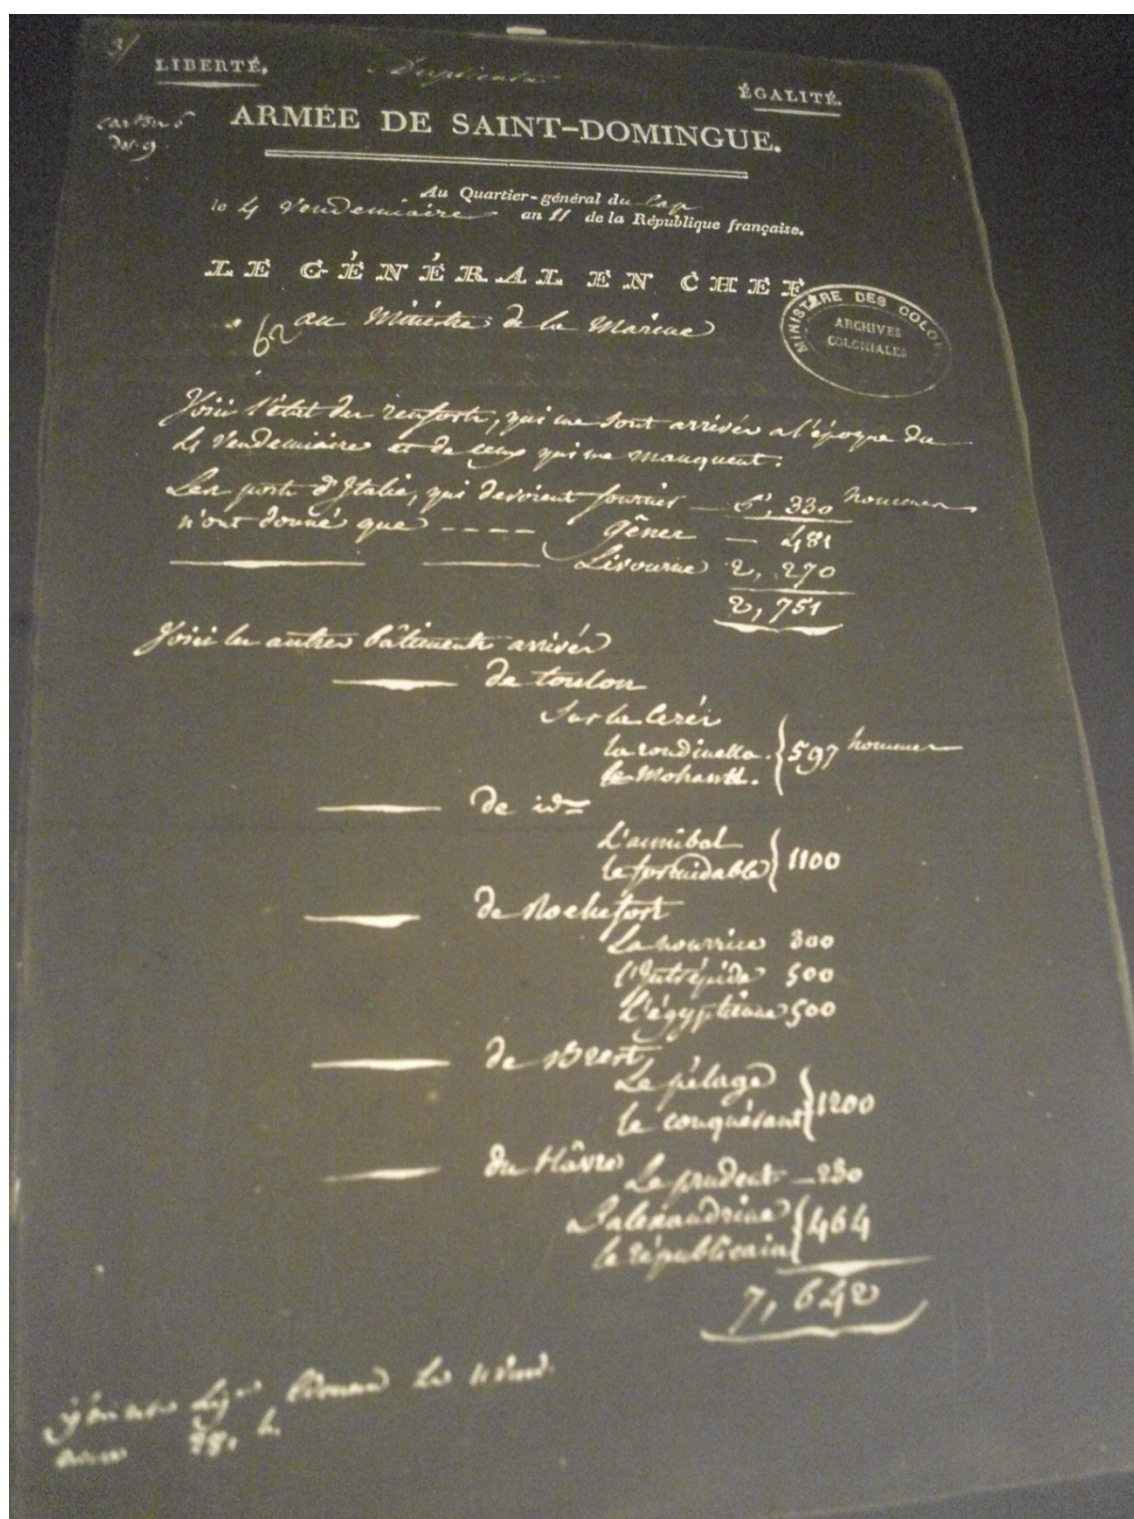 3/
LIBERTÉ.
Duplicata
ÉGALITÉ.
carton 6
dos. 9
ARMÉE DE SAINT-DOMINGUE.
Au Quartier-général du Cap
le 4 Vendemiaire an 11 de la République française.
LE GÉNÉRAL EN CHEF
au Ministre de la Marine
MINISTÈRE DES COLO
ARCHIVES
COLONIALES
Voici l'état des renforts, qui me sont arrivés a l'époque du
4 Vendemiaire et de ceux qui me manquent.
Les ports d'Italie, qui devoient fournir — 6,330 hommes
n'ont donné que ---- Gênes — 481
Livourne 2,270
2,751
Voici les autres bâtiments arrivés
de toulon
Sur le Cerès
la rondinella
le Mohawk.
597 hommes
de idm
L'annibal
le formidable
1100
de Rochefort
La nourrice 300
l'Intrépide 500
L'égyptienne 500
de Brest
Le pélage
le conquérant
1200
du Hâvre
Le prudent — 230
L'alexandrine
le républicain
464
7,642